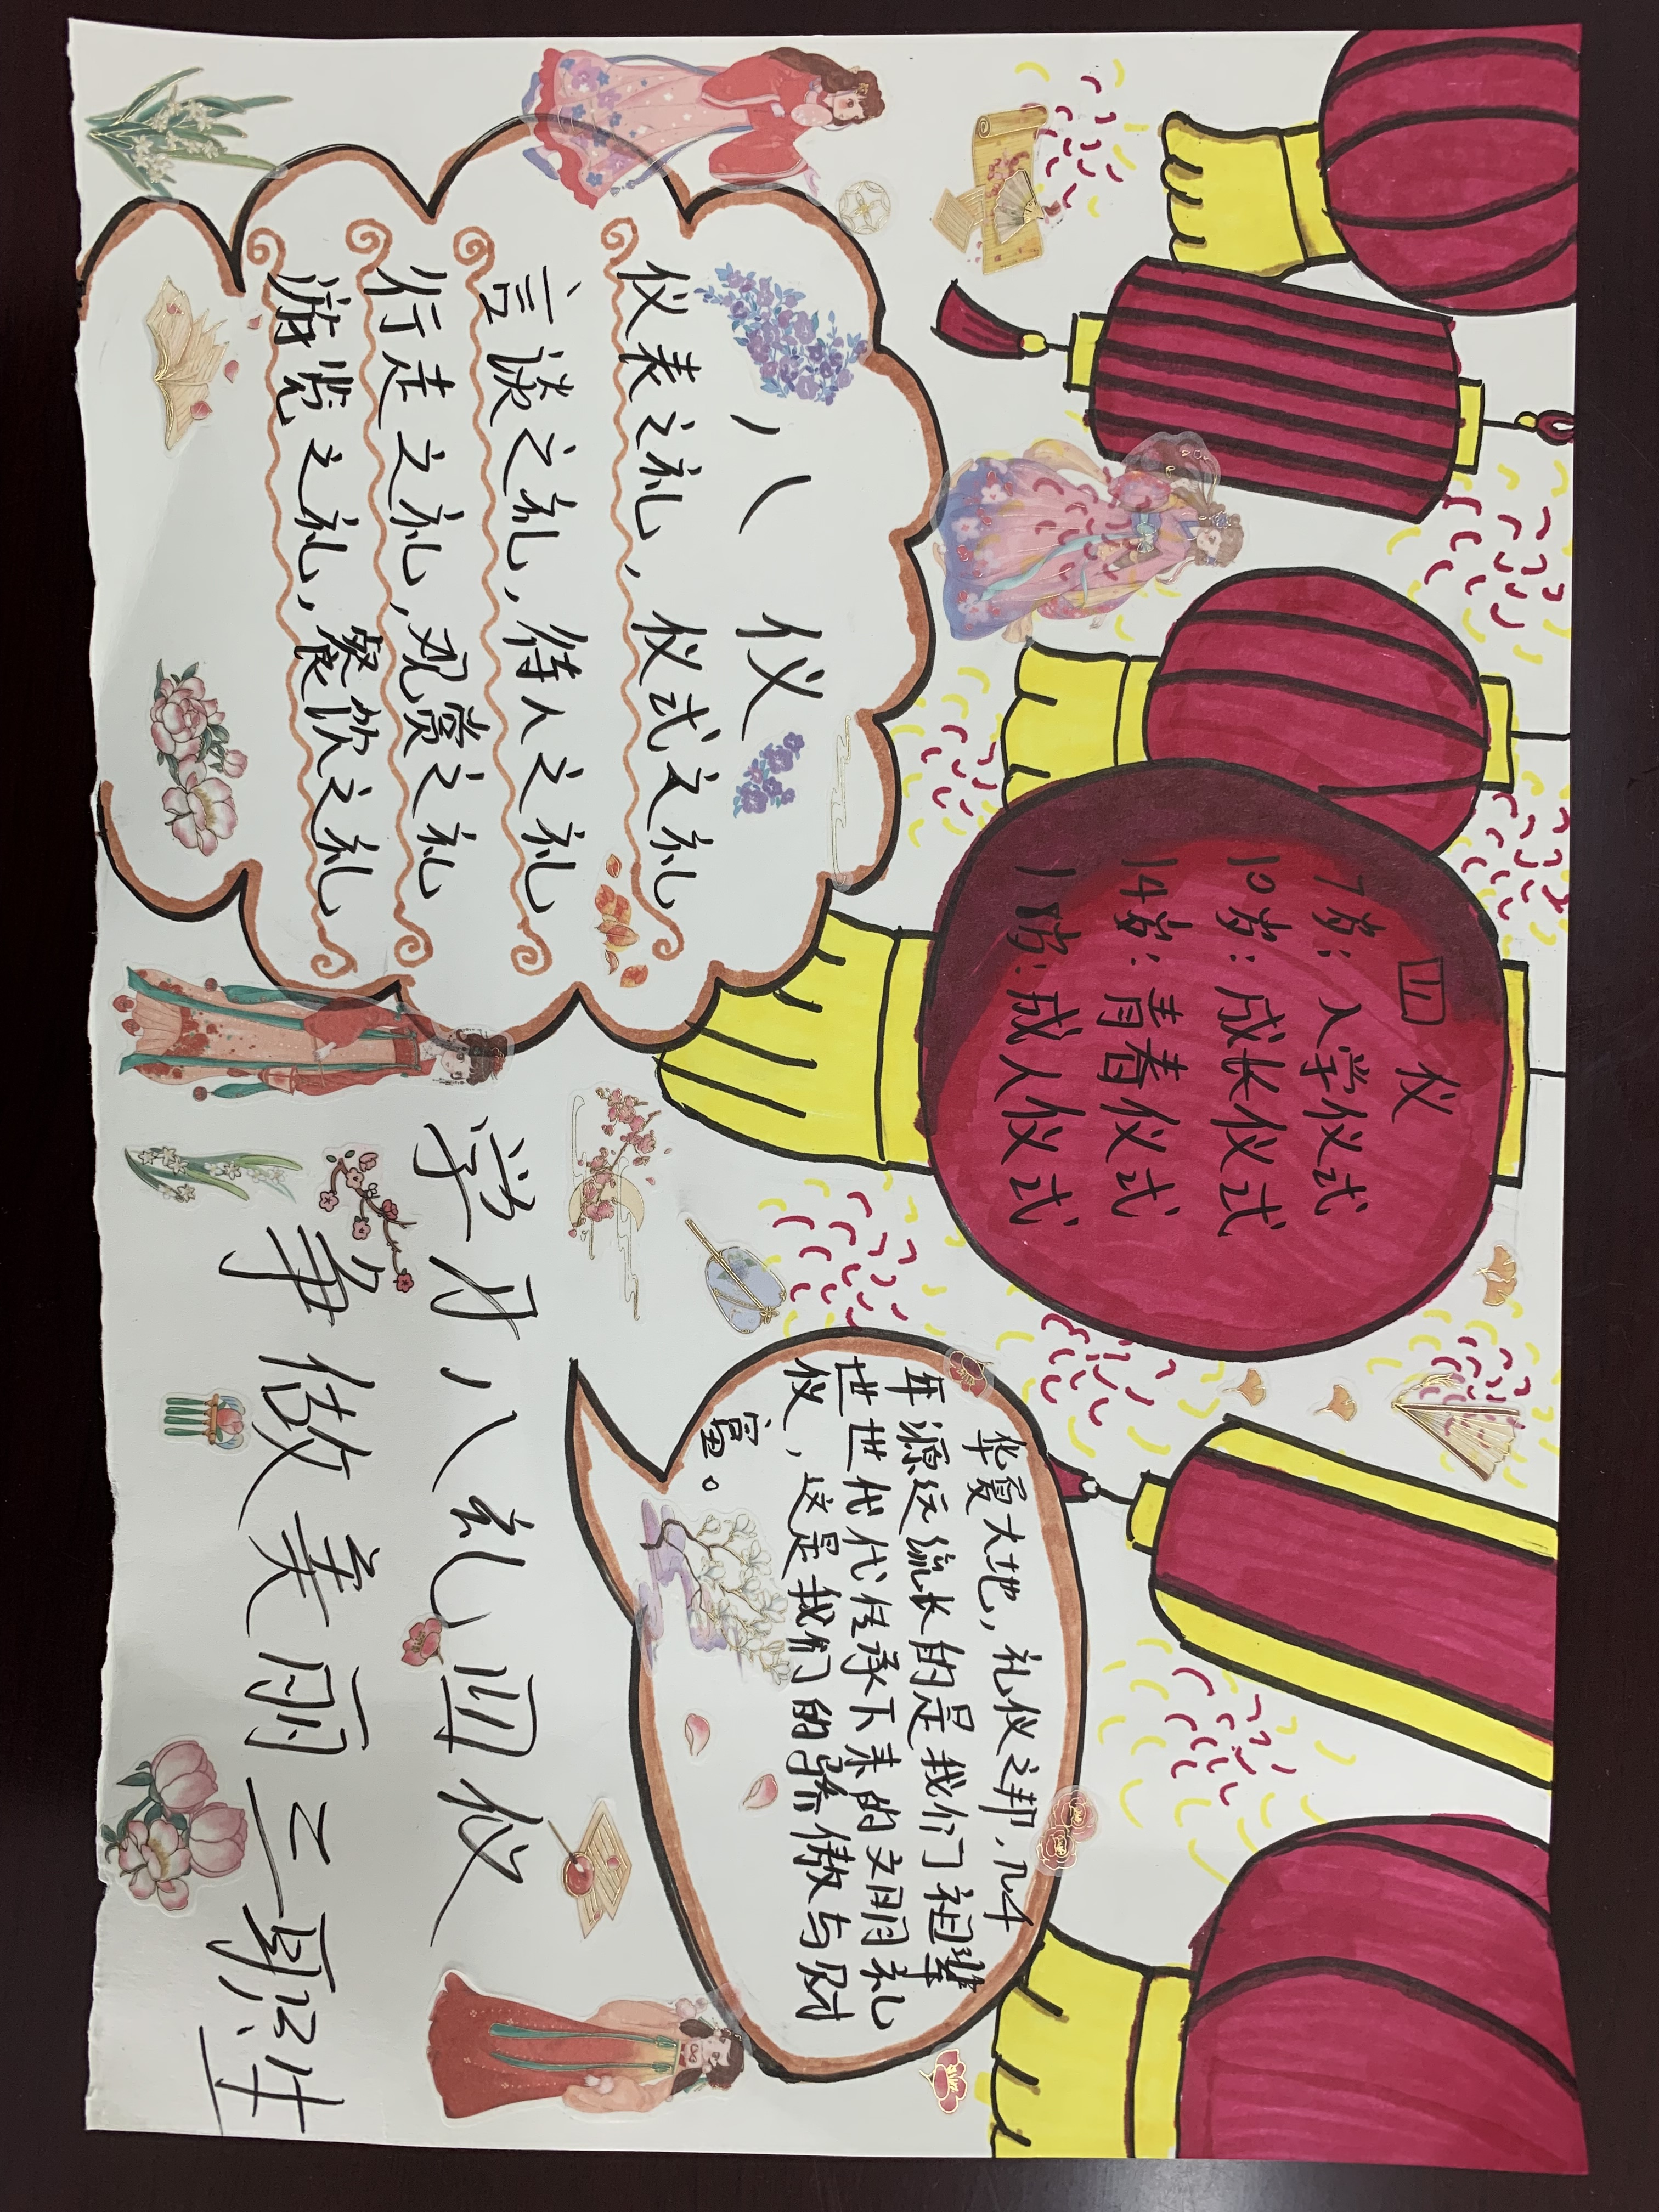 八仪
仪表之礼，仪式之礼
言谈之礼，待人之礼
行走之礼，观赏之礼
游览之礼，餐饮之礼
四仪
7岁：入学仪式
10岁：成长仪式
14岁：青春仪式
18岁：成人仪式
华夏大地，礼仪之邦，几千
年源远流长的是我们祖辈
世世代代传承下来的文明礼
仪，这是我们的骄傲与财
富。
学习八礼四仪
争做美丽三职生